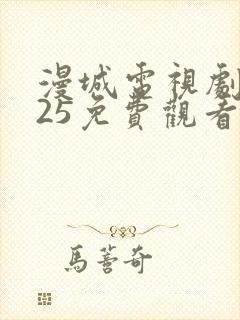 漫城電視劇
25免費觀看
馬蓉奇